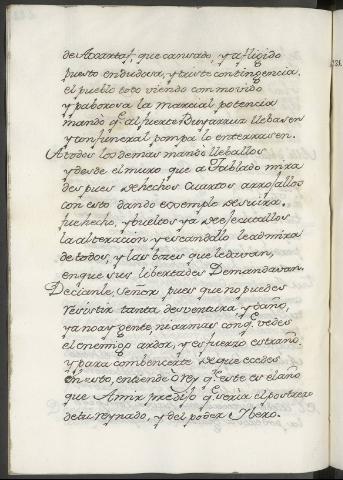 de Axartaf, que cansado, y afligido
puesto en dudosa, y triste contingencia,
el pueblo todo viendo conmovido
y paborosa la marcial potencia
mandó q.e al fuerte Buyarrux llebasen
y con funeral pompa lo enterrasen.
A todos los demas mandó lleballos
y desde el muro que a Tablado mira
despues de hechos cuartos arrojallos
con esto dando exemplo de su ira.
fue hecho, y bueltos ya de sacallos
la alteracion y escandallo le admira
de todos, y las bozes que le davan,
en que sus libertades Demandavan.
Decianle, Señor pues que no puedes
resistir tanta desventura y daño,
ya no ay gente, ni armas con q.e vedes
el enemigo ardor, y esfuerzo estraño.
y para combencerte de que ecedes
en esto, entiende ò rey q.e este es el año
que Amir predijo q.e seria el postrero
de tu reynado, y del poder Ybero.